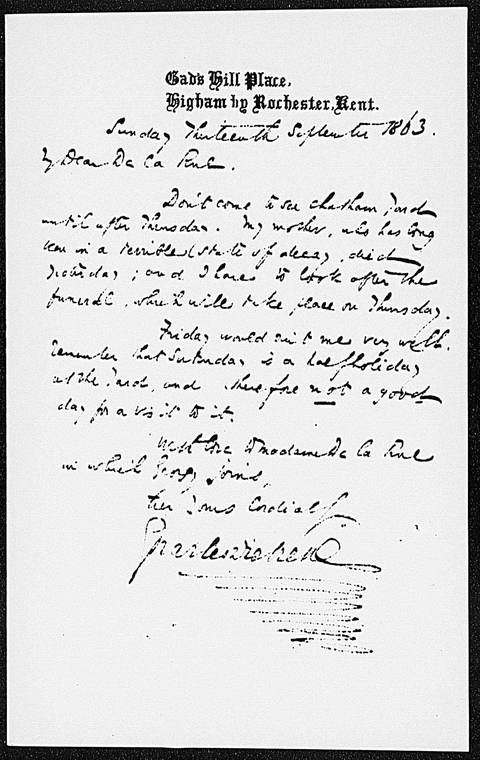 Gad's Hill Place,
Higham by Rochester, Kent.
Sunday Thirteenth September 1863.
My Dear De La Rue.
Don't come to see Chatham Yard
until after Thursday. My mother, who has long
been in a terrible state of decay, died
yesterday; and I have to look after the
funeral, which will take place on Thursday.
Friday would suit me very well.
Remember that Saturday is a half holiday
at the Yard, and therefore not a good
day for a visit to it.
With love to Madame De La Rue
in which Georgy joins,
Ever Yours Cordially
Charles Dickens